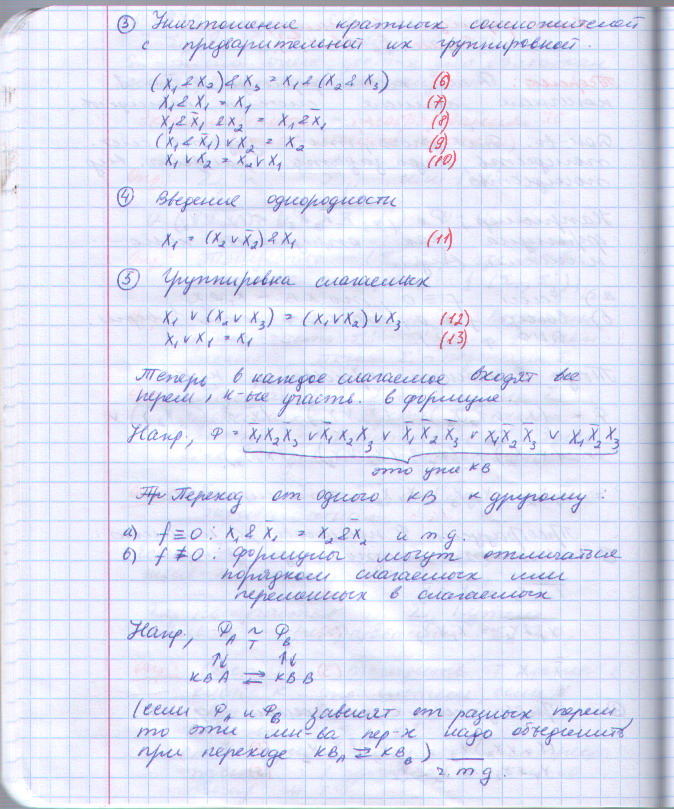 ③ Уничтожение кратных сомножителей
с предварительной их группировкой.
(x₁&x₂)&x₃ = x₁&(x₂&x₃) (6)
x₁&x₁ = x₁ (7)
x₁&x̄₁&x₂ = x₁&x̄₁ (8)
(x₁&x̄₁)∨x₂ = x₂ (9)
x₁∨x₂ = x₂∨x₁ (10)
④ Введение однородности
x₁ = (x₂∨x̄₂)&x₁ (11)
⑤ Группировка слагаемых
x₁ ∨ (x₂∨x₃) = (x₁∨x₂)∨x₃ (12)
x₁∨x₁ = x₁ (13)
Теперь в каждое слагаемое входят все
перем, к-ые участв. в формуле.
Напр, Φ = x̄₁x₂x̄₃ ∨ x̄₁x₂x₃ ∨ x̄₁x̄₂x̄₃ ∨ x₁x̄₂x̄₃ ∨ x₁x̄₂x₃
это уже КВ
Переход от одного КВ к другому:
а) f≡0: x₁&x̄₁ = x₂&x̄₂ и т.д.
б) f≢0: формулы могут отличаться
порядком слагаемых или
переменных в слагаемых
Напр, Φ_A ~_T Φ_B
↑↓ ↑↓
КВ A ⇄ КВ B
(если Φ_A и Φ_B зависят от разных перем,
то эти мн-ва пер-х надо объединить
при переходе КВ_A ⇄ КВ_B)
ч.т.д.